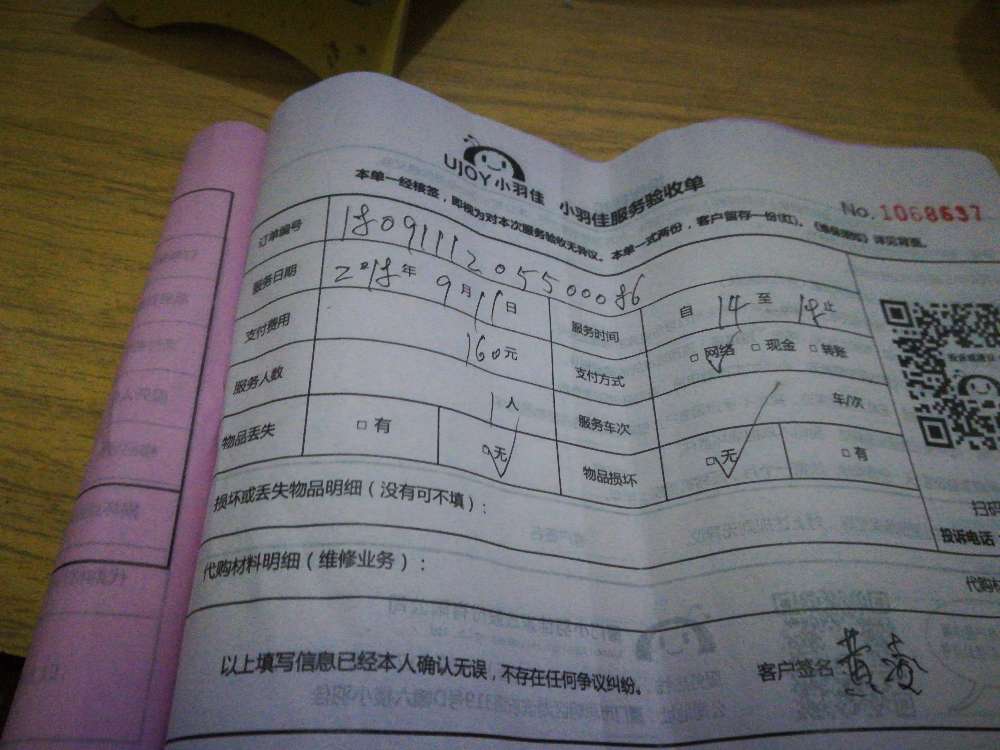 UJOY小羽佳 小羽佳服务验收单
No. 1068637
本单一经核签，即视为对本次服务验收无异议。本单一式两份，客户留存一份(红)。《维保须知》详见背面。
订单编号 180911120550086
服务日期 2018年9月11日 服务时间 自 14 至 止
支付费用 160元 支付方式 □网络 □现金 □转账
服务人数 1人 服务车次 车/次
物品丢失 □有 □无 物品损坏 □无 □有
损坏或丢失物品明细（没有可不填）：
扫码
投诉电话
代购材料明细（维修业务）：
代购材
以上填写信息已经本人确认无误，不存在任何争议纠纷。
客户签名